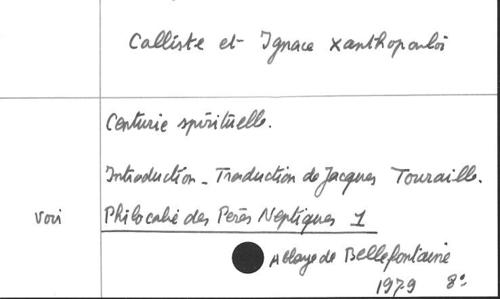 Calliste et Ignace Xanthopouloi
Centurie spirituelle.
Introduction - Traduction de Jacques Touraille.
voir Philocalie des Pères Neptiques 1
Abbaye de Bellefontaine
1979 8°